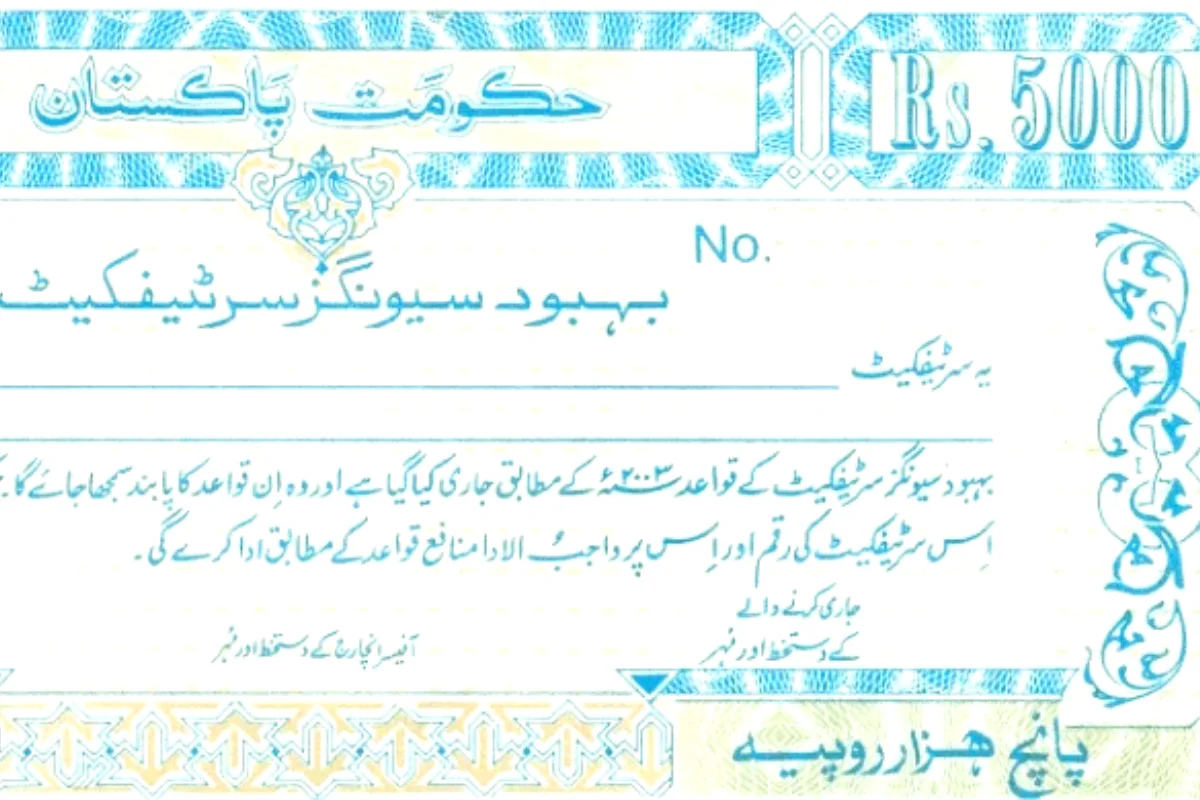 حکومت پاکستان
Rs. 5000
No.
بہبود سیونگز سرٹیفکیٹ
یہ سرٹیفکیٹ
بہبود سیونگز سرٹیفکیٹ کے قواعد ۲۰۰۳ء کے مطابق جاری کیا گیا ہے اور وہ اِن قواعد کا پابند سمجھا جائے گا
اِس سرٹیفکیٹ کی رقم اور اِس پر واجبُ الادا منافع قواعد کے مطابق ادا کرے گی۔
جاری کرنے والے
کے دستخط اور مُہر
آفیسر انچارج کے دستخط اور مُہر
پانچ ہزار روپیہ